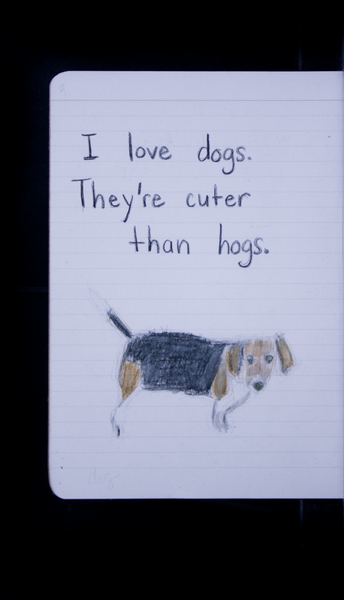 I love dogs.
They're cuter
than hogs.